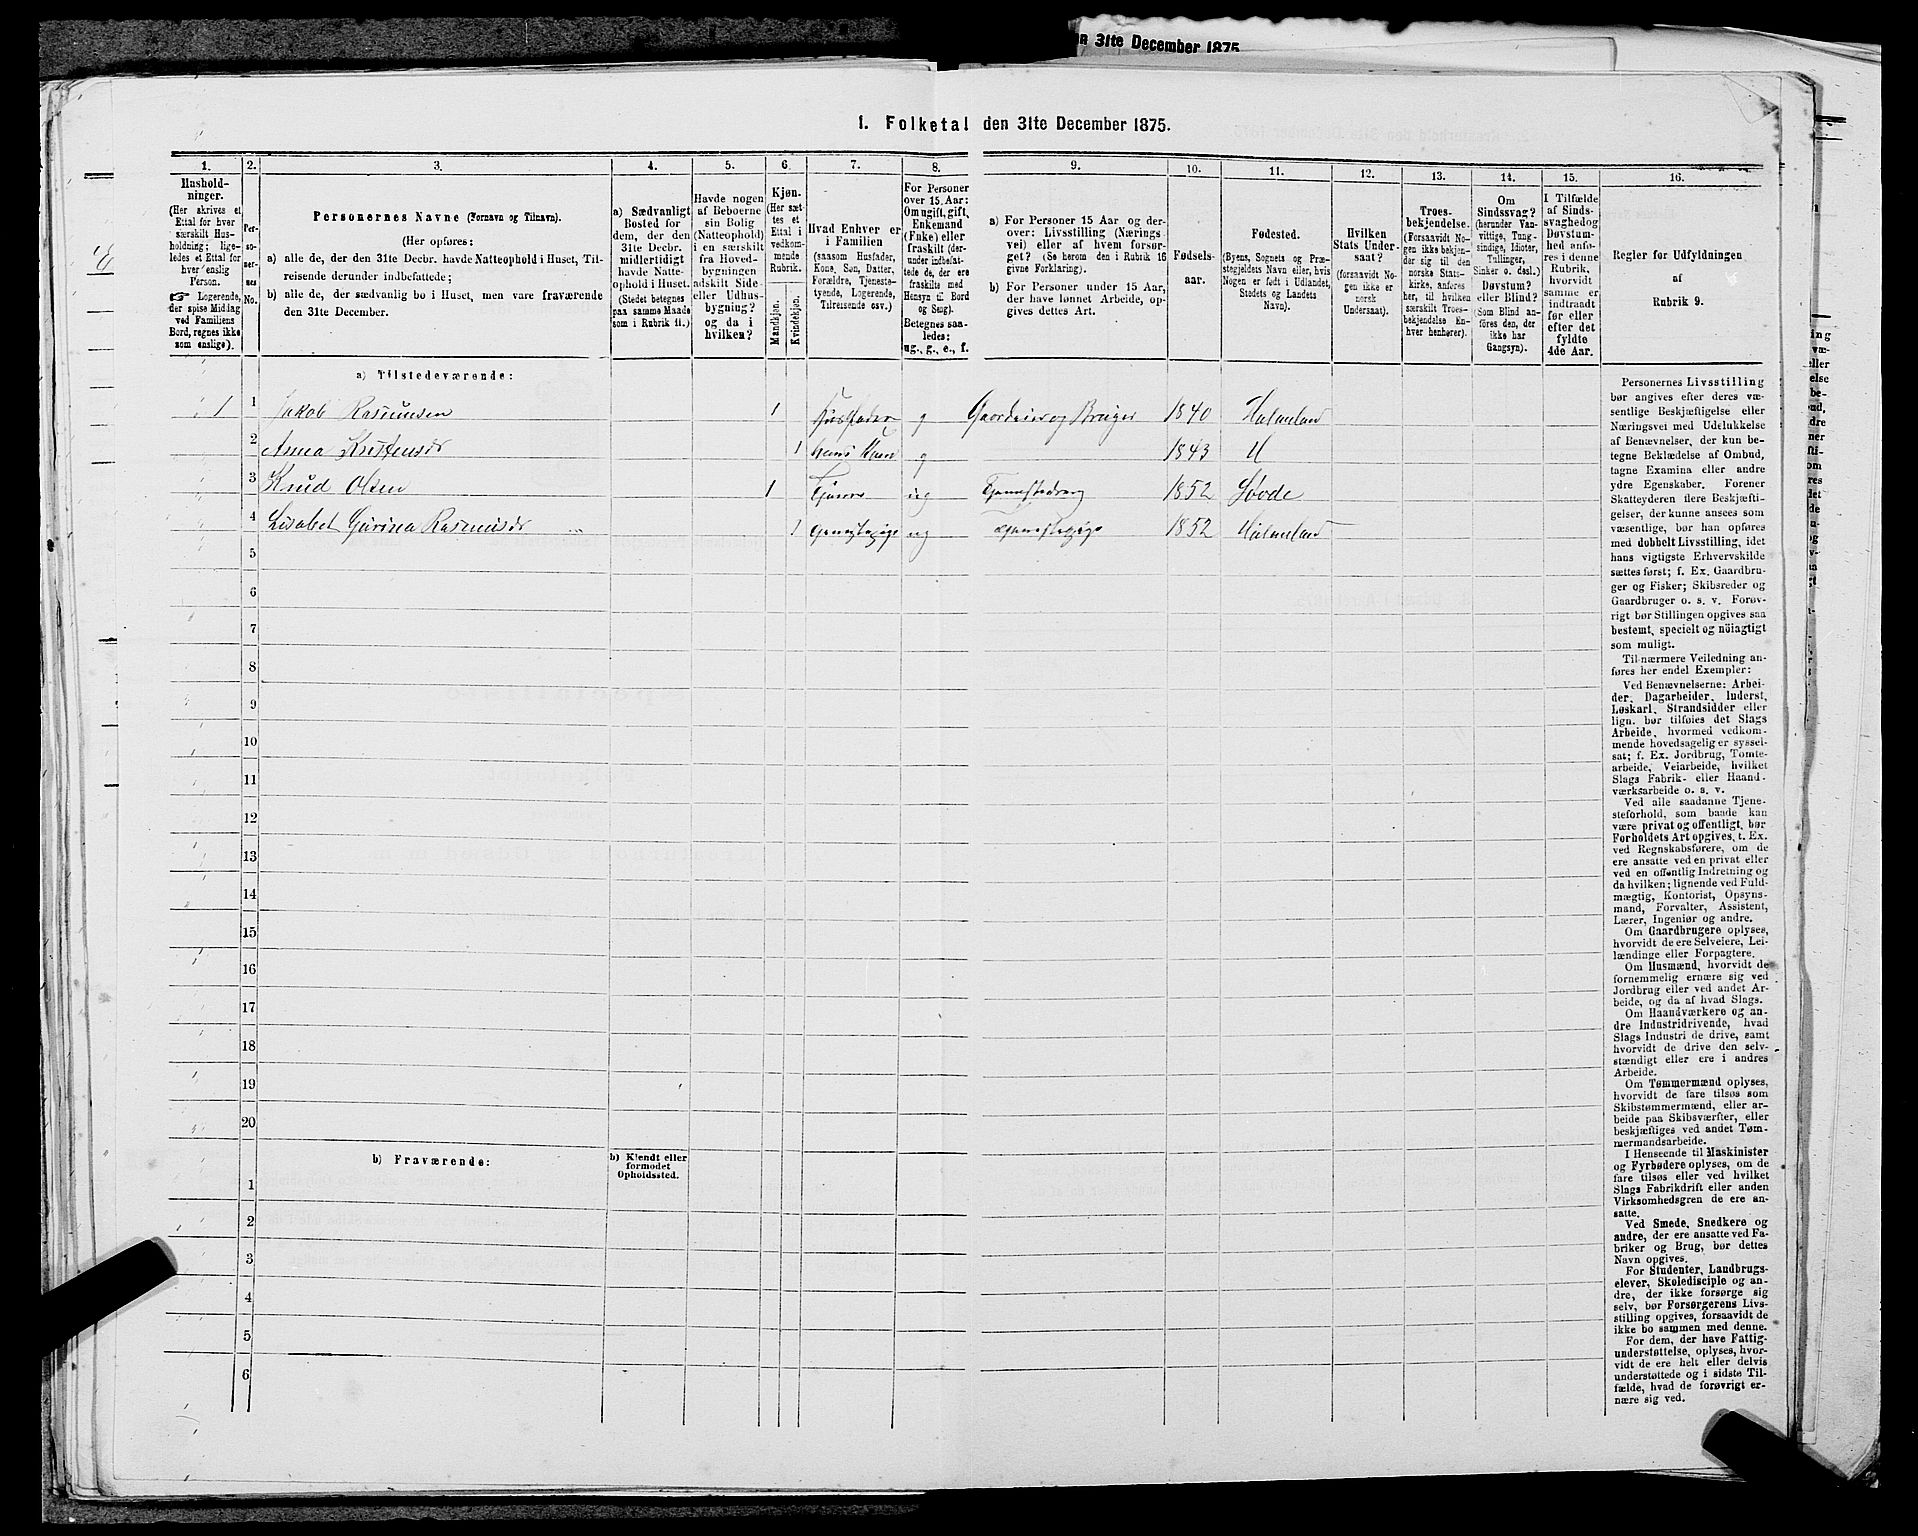 n 31te December 1875
1. Folketal den 31te December 1875.
1. 2. 3. 4. 5. 6. 7. 8. 9. 10. 11. 12. 13. 14. 15. 16.
Hushold-
ninger.
(Her skrives et
Ettal for hver
særskilt Hus-
holdning; lige-
ledes et Ettal for
hver enslig
Person.
☞ Logerende,
der spise Middag
ved Familiens
Bord, regnes ikke
som enslige).
Per-
so-
ner-
nes
No.
Personernes Navne (Fornavn og Tilnavn).
(Her opføres:
a) alle de, der den 31te Decbr. havde Natteophold i Huset, Til-
reisende derunder indbefattede;
b) alle de, der sædvanlig bo i Huset, men vare fraværende
den 31te December.
a) Sædvanligt
Bosted for
dem, der den
31te Decbr.
midlertidigt
havde Natte-
ophold i Huset.
(Stedet betegnes
paa samme Maade
som i Rubrik 11.)
Havde nogen
af Beboerne
sin Bolig
(Natteophold)
i en særskilt
fra Hoved-
bygningen
adskilt Side-
eller Udhus-
bygning?
og da i
hvilken?
Kjøn.
(Her sæt-
tes et
Ettal i
vedkom-
mende
Rubrik.
Mandkjøn.
Kvindekjøn.
Hvad Enhver er
i Familien
(saasom Husfader,
Kone, Søn, Datter,
Forældre, Tjeneste-
tyende, Logerende,
Tilreisende osv.)
For Personer
over 15 Aar:
Om ugift, gift,
Enkemand
(Enke) eller
fraskilt (der-
under indbefat-
tede de, der ere
fraskilte med
Hensyn til Bord
og Seng).
Betegnes saa-
ledes:
ug., g., e., f.
a) For Personer 15 Aar og der-
over: Livsstilling (Nærings-
vei) eller af hvem forsør-
get? (Se herom den i Rubrik 16
givne Forklaring).
b) For Personer under 15 Aar,
der have lønnet Arbeide, op-
gives dettes Art.
Fødsels-
aar.
Fødested.
(Byens, Sognets og Præ-
stegjeldets Navn eller, hvis
Nogen er født i Udlandet,
Stedets og Landets
Navn).
Hvilken
Stats Under-
saat?
(forsaavidt No-
gen ikke er
norsk
Undersaat).
Troes-
bekjendelse.
(Forsaavidt No-
gen ikke bekjen-
der sig til den
norske Stats-
kirke, anføres
her, til hvilken
særskilt Troes-
bekjendelse En-
hver henhører).
Om
Sindssvag?
(herunder Van-
vittige, Tung-
sindige, Idioter,
Sinker o. desl.)
Døvstum?
eller Blind?
(Som Blind an-
føres den, der
ikke har
Gangsyn).
I Tilfælde
af Sinds-
svaghed og
Døvstum-
hed anfø-
res i denne
Rubrik,
hvorvidt
samme er
indtraadt
før eller
efter det
fyldte
4de Aar.
Regler for Udfyldningen
af
Rubrik 9.
a) Tilstedeværende:
1 1 Jakob Rasmusen 1 Husfader g Gaardeier og Bruger 1840 Halmeland
2 Anna Kristensdr 1 hans Kone g 1843 H
3 Knud Olsen 1 Tjener ug 1852 Søvde
4 Lisabet Gurina Rasmusdr 1 ug 1852 Halmeland
5
6
7
8
9
10
11
12
13
14
15
16
17
18
19
20
b) Fraværende:
b) Kjendt eller
formodet
Opholdssted.
1
2
3
4
5
6
Personernes Livsstilling
bør angives efter deres væ-
sentlige Beskjæftigelse eller
Næringsvei med Udelukkelse
af Benævnelser, der kun be-
tegne Beklædelse af Ombud,
tagne Examina eller andre
ydre Egenskaber. Forener
Skatteyderen flere Beskjæfti-
gelser, der kunne ansees som
væsentlige, bør han opføres
med dobbelt Livsstilling, idet
hans vigtigste Erhvervskilde
sættes først; f. Ex. Gaardbru-
ger og Fisker; Skibsreder og
Gaardbruger o. s. v. Forøv-
rigt bør Stillingen opgives saa
bestemt, specielt og nöiagtigt
som muligt.
Til nærmere Veiledning an-
føres her endel Exempler:
Ved Benævnelserne: Arbei-
der, Dagarbeider, Inderst,
Løskarl, Strandsidder eller
lign. bør tilføies det Slags
Arbeide, hvormed vedkom-
mende hovedsagelig er syssel-
sat; f. Ex. Jordbrug, Tomte-
arbeide, Veiarbeide, hvilket
Slags Fabrik- eller Haand-
værksarbeide o. s. v.
Ved alle saadanne Tjene-
steforhold, som baade kan
være privat og offentligt, bør
Forholdets Art opgives, t. Ex.
ved Regnskabsførere, om de
ere ansatte ved en privat eller
ved en offentlig Indretning og
da hvilken; lignende ved Fuld-
mægtig, Kontorist, Opsyns-
mand, Forvalter, Assistent,
Lærer, Ingeniør og andre.
Om Gaardbrugere oplyses,
hvorvidt de ere Selveiere, Lei-
lændinge eller Forpagtere.
Om Husmænd, hvorvidt de
fornemmelig ernære sig ved
Jordbrug eller ved andet Ar-
beide, og da af hvad Slags.
Om Haandværkere og an-
dre Industridrivende, hvad
Slags Industri de drive, samt
hvorvidt de drive den selv-
stændigt eller ere i andres
Arbeide.
Om Tømmermænd oplyses,
hvorvidt de fare tilsøs som
Skibstømmermænd, eller ar-
beide paa Skibsværfter, eller
beskjæftiges ved andet Tøm-
mermandsarbeide.
I Henseende til Maskinister
og Fyrbødere oplyses, om de
fare tilsøs eller ved hvilket
Slags Fabrikdrift eller anden
Virksomhedsgren de ere an-
satte.
Ved Smede, Snedkere og
andre, der ere ansatte ved Fa-
briker og Brug, bør dettes
Navn opgives.
For Studenter, Landbrugs-
elever, Skoledisciple og an-
dre, der ikke forsørge sig
selv, bør Forsørgerens Livs-
stilling opgives, forsaavidt de
ikke bo sammen med denne.
For dem, der have Fattig-
understøttelse, oplyses, hvor-
vidt de ere helt eller delvis
understøttede og i sidste Til-
fælde, hvad de forøvrigt er-
nære sig ved.